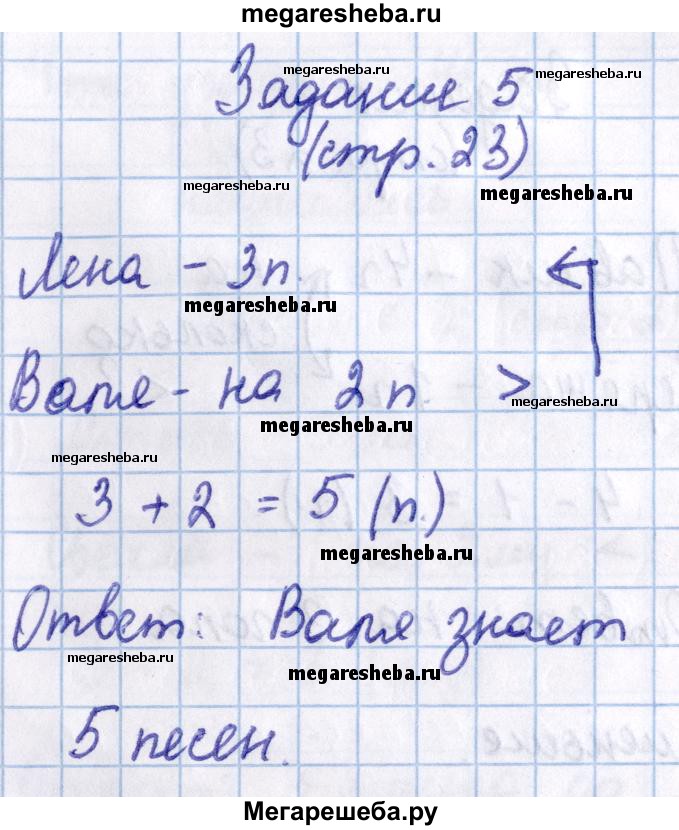 megaresheba.ru
megaresheba.ru
Задание 5
megaresheba.ru
(стр. 23)
megaresheba.ru
megaresheba.ru
Лена - 3п.
megaresheba.ru
Валя - на 2п. >
megaresheba.ru
megaresheba.ru
megaresheba.ru
3 + 2 = 5 (п.)
megaresheba.ru
Ответ: Валя знает
megaresheba.ru
megaresheba.ru
5 песен.
Мегарешеба.ру